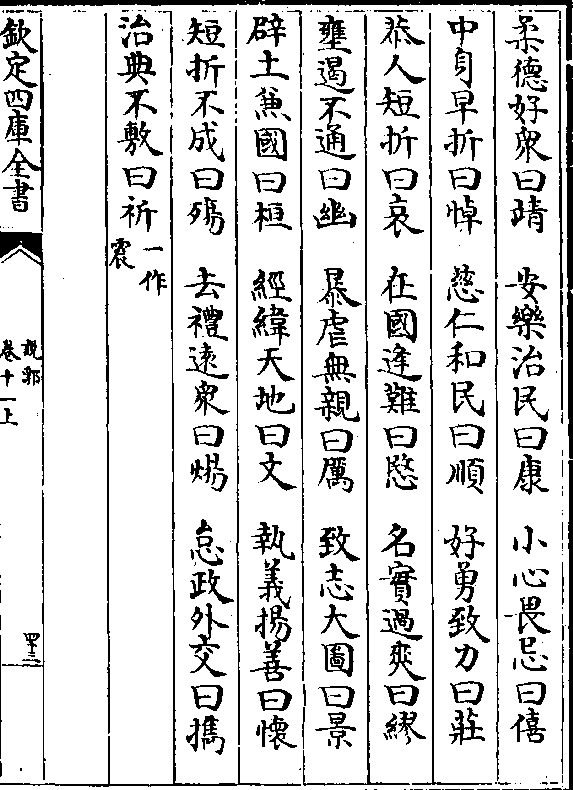 柔德好衆曰靖　安樂治民曰康　小心畏忌曰僖
中身早折曰悼　慈仁和民曰順　好勇致力曰莊
恭人短折曰哀　在國逢難曰愍　名實過爽曰繆
壅遏不通曰幽　暴虐無親曰厲　致志大圖曰景
辟土兼國曰桓　經緯天地曰文　執義揚善曰懷
短折不成曰殤　去禮遠衆曰煬　怠政外交曰攜
治典不敷曰祈一作震
欽定四庫全書
說郛
卷十一上
四十三